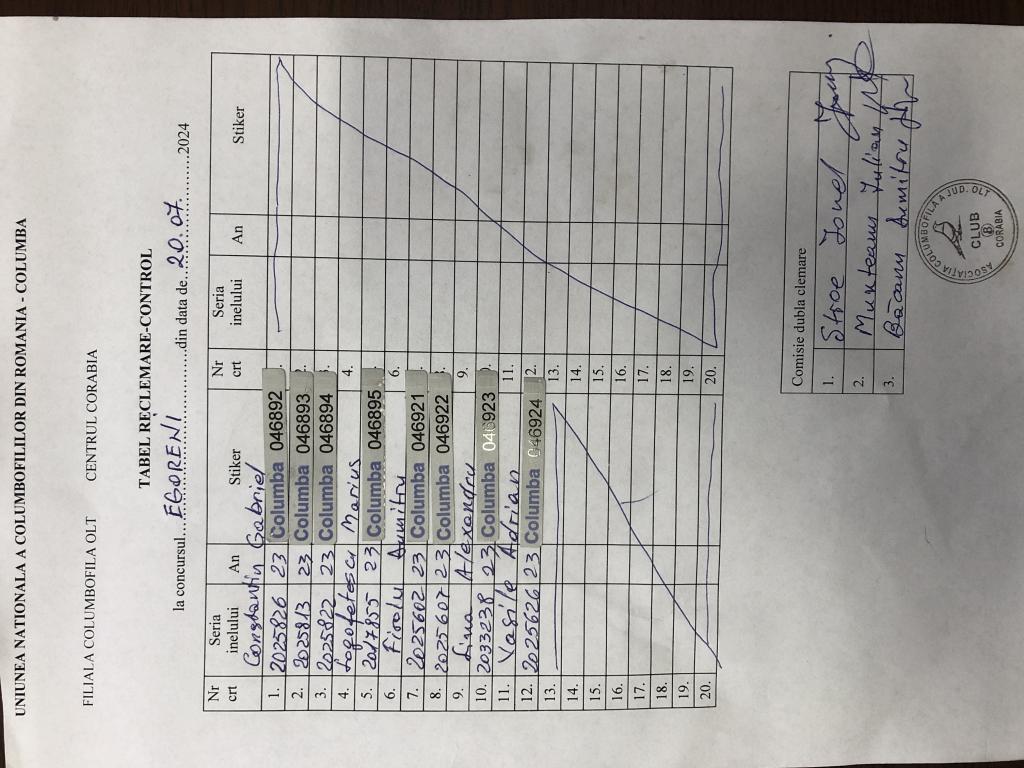 UNIUNEA NATIONALA A COLUMBOFILILOR DIN ROMANIA - COLUMBA
FILIALA COLUMBOFILA OLT CENTRUL CORABIA
TABEL RECLEMARE-CONTROL
la concursul....EGORENI..............din data de...20.07...........2024
Nr crt Seria inelului An Stiker Nr crt Seria inelului An Stiker
Constantin Gabriel
1. 2025826 23 Columba 046892
2. 2025813 23 Columba 046893
3. 2025822 23 Columba 046894
4. Logofetescu Marius 4.
5. 2017855 23 Columba 046895
6. Dumitru 6.
7. 2025602 23 Columba 046921
8. 2025607 23 Columba 046922
9. Lina Alexandru 9.
10. 2033238 23 Columba 046923
11. Vasile Adrian 11.
12. 2025626 23 Columba 046924 2.
13. 13.
14. 14.
15. 15.
16. 16.
17. 17.
18. 18.
19. 19.
20. 20.
Comisie dubla clemare
1. Stroe Ionel
2. Munteanu Iulian
3. Băanu Dumitru
ASOCIAȚIA COLUMBOFILA A JUD. OLT
CLUB
B
CORABIA